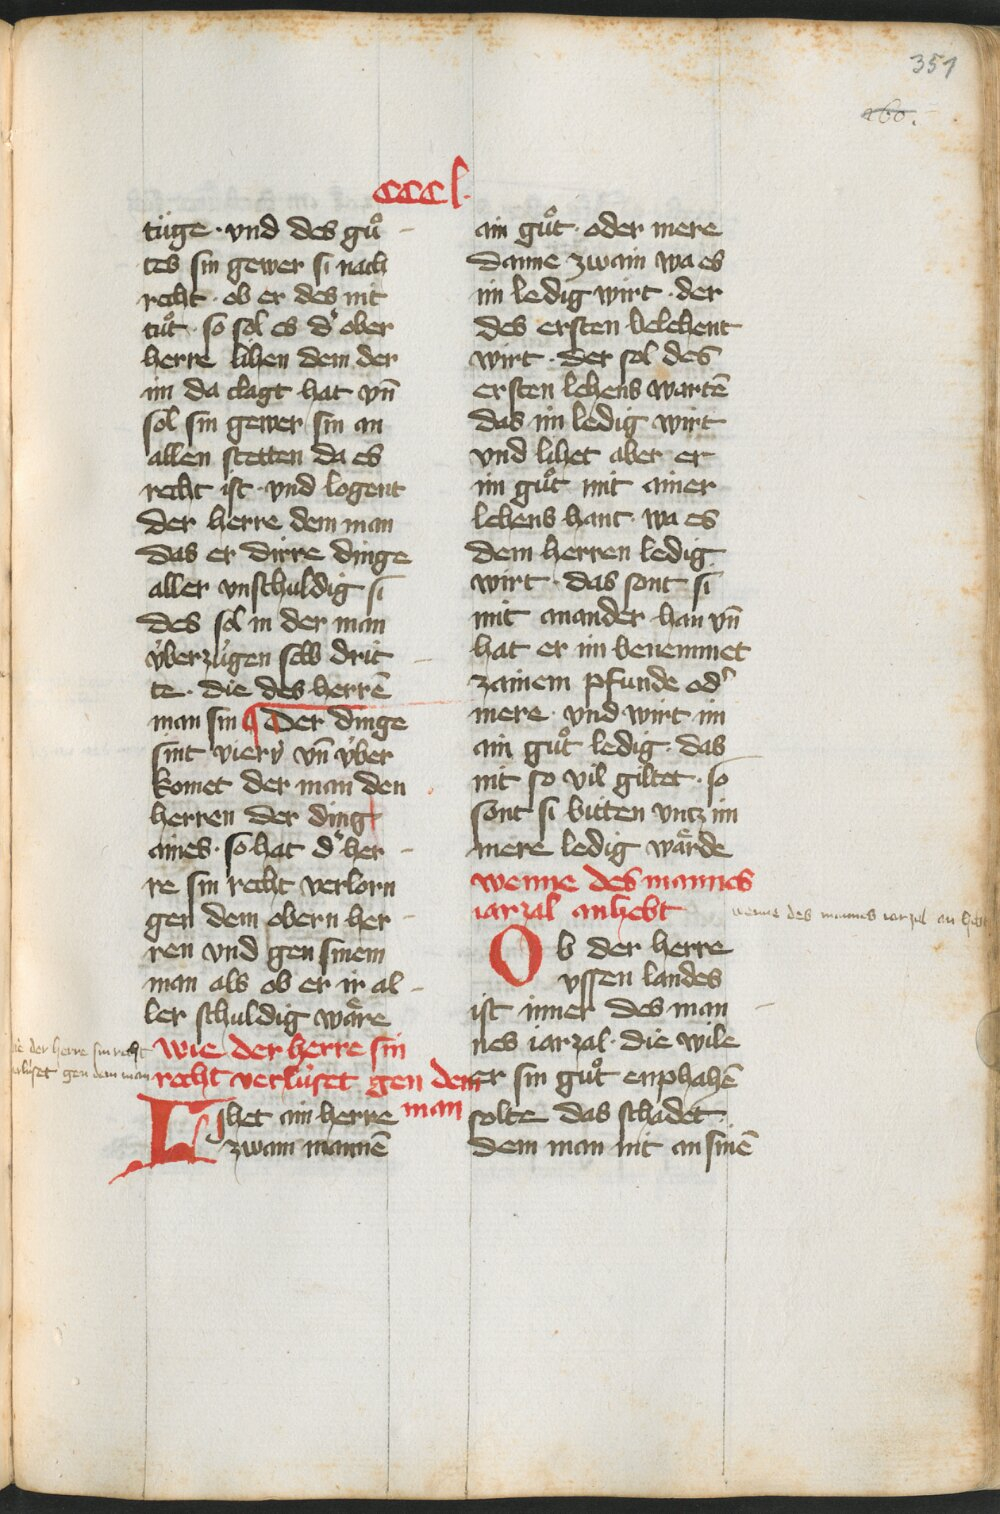 351
260.
cccl.
tüge · vnd des guͦ
tes sin gewer si nach
recht · ob er des nit
tuͦt · so sol es d' ober
herre lihen dem der
im da clagt hat vn̄
sol sin gewer sin an
allen stetten da es
recht ist · vnd logent
der herre dem man
das er dirre dinge
aller vnschuldig si
des sol in der man
v́berzúgen selb drit
te · die des herrē
man sin ¶ Der dinge
sint vierú vn̄ v́ber
komet der man den
herren der ding
aines · so hat d' her
re sin recht verlorn
gen dem obern her
ren vnd gen sinem
man als ob er ir al
ler schuldig waͤre
wie der herre sin
recht verlúset gen dem
man
wie der herre sin recht
verlúset gen dem man
Lihet ain herre
zwain mannē
ain guͦt · oder mere
danne zwain wa es
im ledig wirt · der
des ersten belehent
wirt · der sol des
ersten lehens wartē
das im ledig wirt
vnd lihet aber er
im guͦt mit ainer
lehens hant · wa es
dem herren ledig
wirt · das sont si
mit anander han vn̄
hat er im benemmet
zainem pfunde od'
mere · vnd wirt im
ain guͦt ledig das
nit so vil giltet · so
sont si bitten vntz im
mere ledig waͤrde
wenne des mannes
iarzal anhebt
wenne des mannes iarzal an hebt
Ob der herre
vssen landes
ist inner des man
nes iarzal · die wile
er sin guͦt enphahē
solte das schadet
dem man nit an sinē